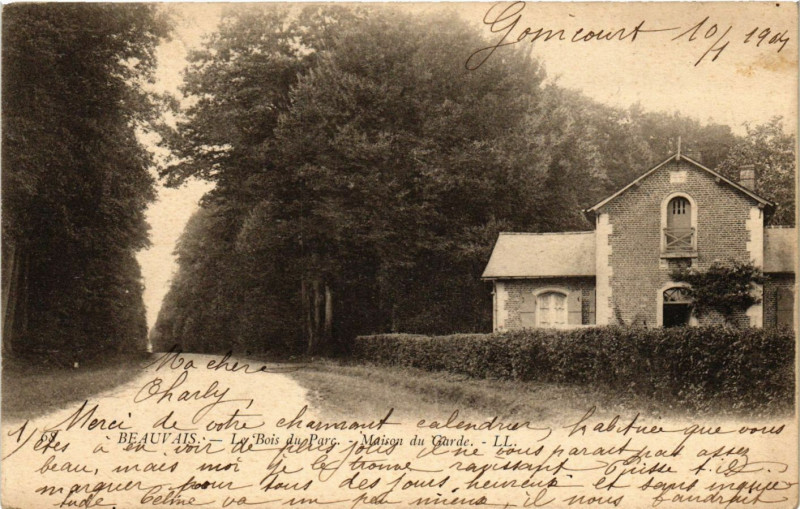 Gonicourt 10/1 1904
Ma chère
Charly
Merci de votre charmant calendrier, habituée que vous
68. BEAUVAIS. — Le Bois du Parc. - Maison du Garde. - LL.
êtes à en voir de plus jolis il ne vous parait pas assez
beau, mais moi je le trouve ravissant Puisse t-il
marquer pour vous des jours heureux et sans inquié
tude Céline va un peu mieux, il nous faudrait